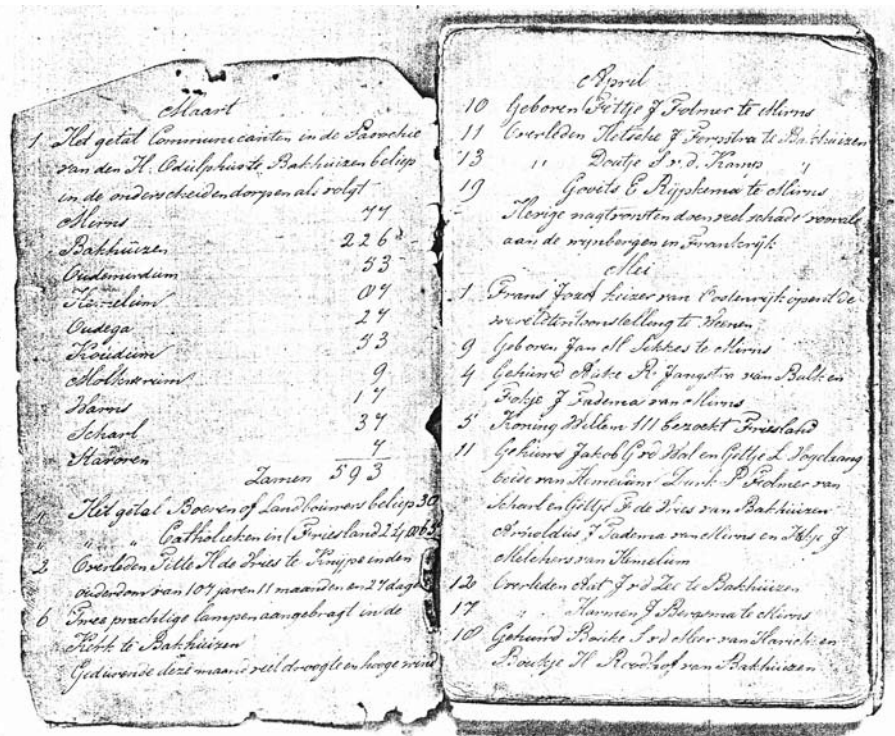 Maart
1 Het getal Communicanten in de Parochie
van den H. Odulphus te Bakhuizen beliep
in de onderscheiden dorpen als volgt
Mirns 77
Bakhuizen 226
Oudemirdum 53
Hemelum 87
Oudega 27
Koudum 53
Molkwerum 9
Warns 17
Scharl 37
Staveren 7
Zamen 593
" Het getal Boeren of Landbouwers beliep 30
" " " Catholieken in Friesland
2 Overleden Pitte H de Vries te Knijpe in den
ouderdom van 107 jaren 11 maanden en 27 dage
6 Twee prachtige lampen aangebragt in de
Kerk te Bakhuizen
Gedurende deze maand veel droogte en hooge wind
April
10 Geboren Fettje J Folmer te Mirns
11 Overleden Hotske J Feenstra te Bakhuizen
13 " Doutje S v.d. Kamp "
19 Govits E Rijpkema te Mirns
Hevige nagtvorsten doen veel schade vooral
aan de wijnbergen in Frankrijk
Mei
1 Frans Jozef keizer van Oostenrijk opent de
wereldtentoonstelling te Weenen
9 Geboren Jan M Sikkes te Mirns
4 Gehuwd Auke R. Jongstra van Balk en
Fokje J Tadema van Mirns
5 Koning Willem III bezoekt Friesland
11 Gehuwd Jakob G vd Wal en Geltje L Vogelzang
beide van Hemelum P Folmer van
Scharl en Geltje F de Vries van Bakhuizen
Arnoldus J Tadema van Mirns en J
Melchers van Hemelum
12 Overleden Aut J vd Zee te Bakhuizen
17 " Harmen J Bergsma te Mirns
18 Gehuwd Bauke S vd Meer van Harich en
Boukje H Roodhof van Bakhuizen